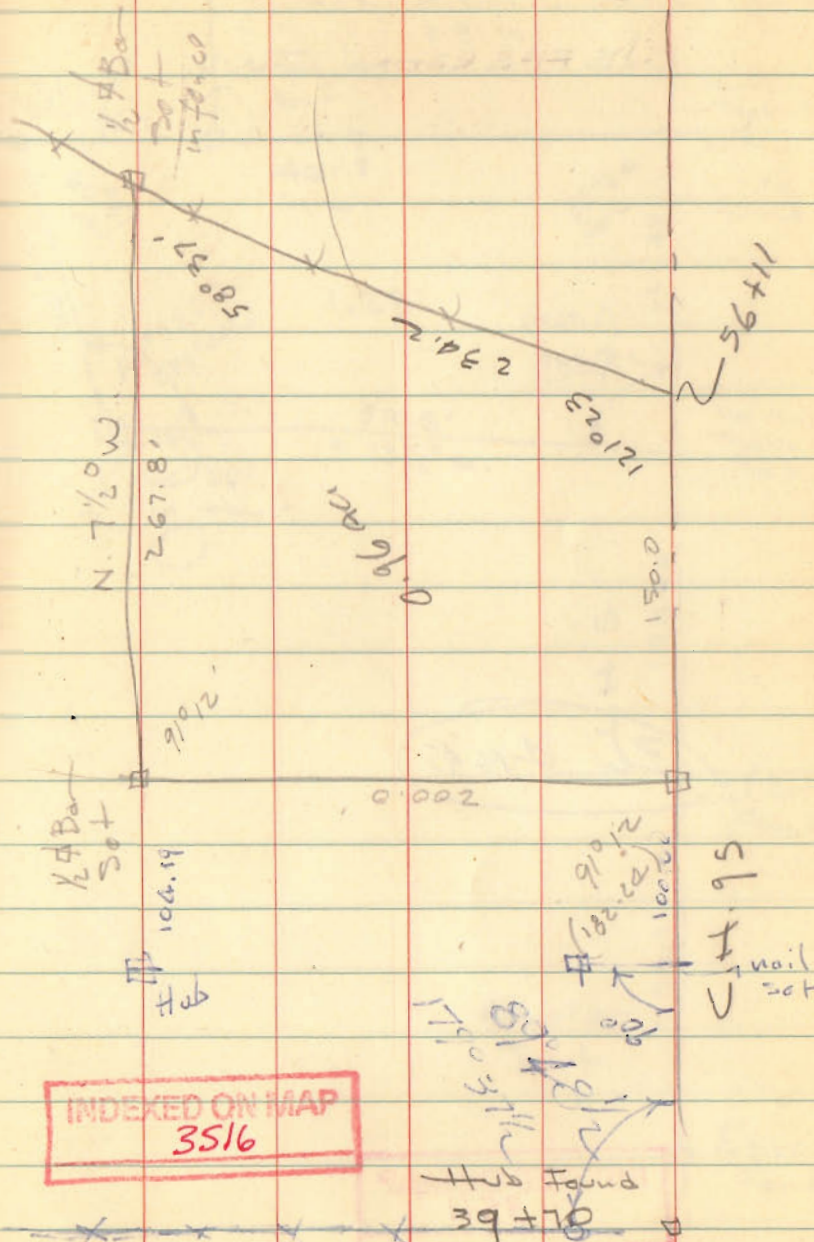 1/2 ϕ Bar
Set
in fence
58° 37'
234.2
121° 23
56+11
N. 7 1/2° W.
267.8'
0.96 Ac.
150.0
91° 12'
200.0
1/2 ϕ Bar
Set
104.19
Hub
91° 12
(182.24)
C.H. 95
nail
set
90°
INDEXED ON MAP
3516
Hub Found
39+70